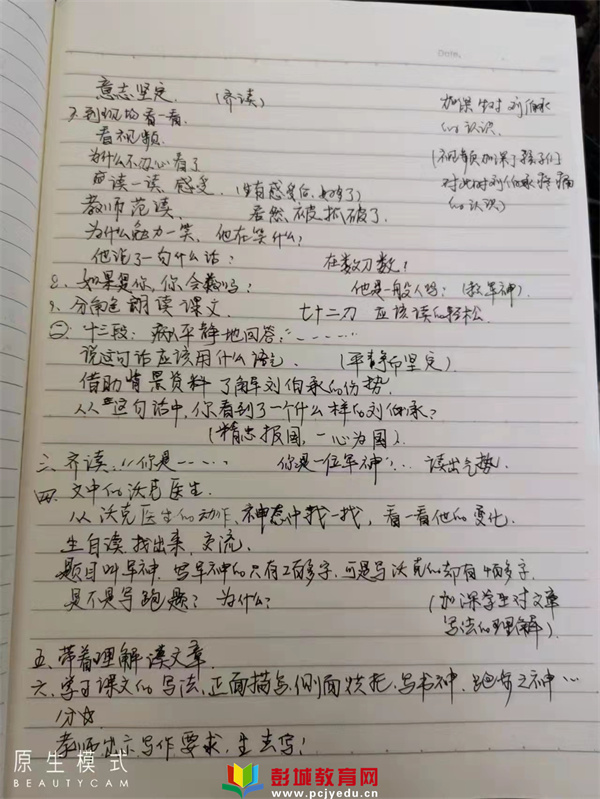 Date.
意志坚定. (齐读) 加深生对刘伯承
7. 到现场看一看. 的认识.
看视频. (视频加深了孩子们
为什么不忍心看了 对此时刘伯承疼痛
再读一读, 感受. (没有感受, ) 的认识)
教师范读. 居然被抓破了.
为什么勉力一笑, 他在笑什么?
他说了一句什么话? 在数刀数!
8. 如果是你, 你会数吗? 他是一般人吗? (救军神).
9. 分角色朗读课文. 七十二刀 应该读的轻松
㊁ 十三段: 病人平静地回答: "……
说这句话应该用什么语气. (平静而坚定)
借助背景资料 了解刘伯承的伤势.
从这句话中, 你看到了一个什么样的刘伯承?
(精忠报国, 一心为国).
三. 齐读: "你是…… 你是一位军神"… 读出气势.
四. 文中的沃克医生.
从沃克医生的动作、神态中找一找, 看一看他的变化.
生自读. 找出来, 交流.
题目叫军神. 写军神的只有2百多字, 可是写沃克的却有4百多字.
是不是写跑题? 为什么? (加深学生对文章
写法的理解).
五. 带着理解读文章.
六. 学习课文的写法, 正面描写、侧面烘托. 写书神. 之神…
1分
教师出示写作要求, 生去写!
原生模式
BEAUTYCAM
彭城教育网
www.pcjyedu.cn